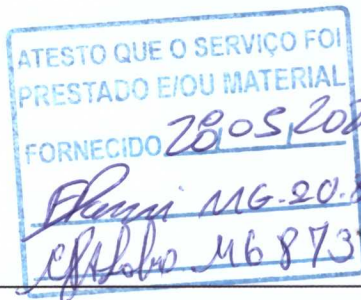 ATESTO QUE O SERVIÇO FOI
PRESTADO E/OU MATERIAL
FORNECIDO 28,05,202
MG-20.
MG 873